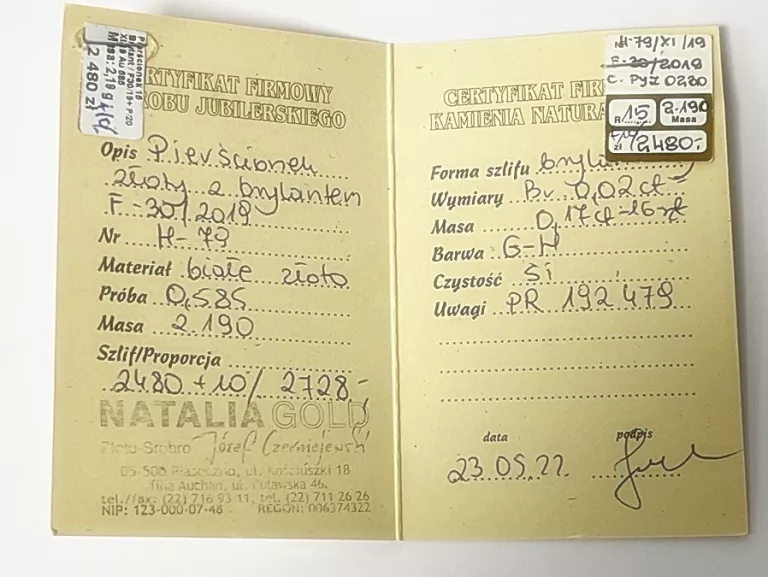 Pierścionek 15
Brylant / F30/19+ P/20
XI/19 Au 585
Masa: 2,19 g
2 480 zł
CERTYFIKAT FIRMOWY
WYROBU JUBILERSKIEGO
Opis Pierścionek
złoty z brylantem
F-30/2019
Nr H-79
Materiał białe złoto
Próba 0,585
Masa 2.190
Szlif/Proporcja
2480 +10/ 2728,-
NATALIA GOLD
Złoto-Srebro Józef Czerniejewski
05-500 Piaseczno, ul. Kościuszki 18
filia Auchan, ul. Puławska 46.
tel./fax: (22) 716 93 11, tel. (22) 711 26 26
NIP: 123-000-07-46 REGON: 006374322
H-79/XI/19
F-30/2019
C. PYI 0220
R 15 2.190
Masa
zł 2480.-
CERTYFIKAT
KAMIENIA
Forma szlifu
Wymiary Br 0,02ct
Masa 0,17ct-16szt
Barwa G-H
Czystość Si
Uwagi PR 192479
data podpis
23.05.22